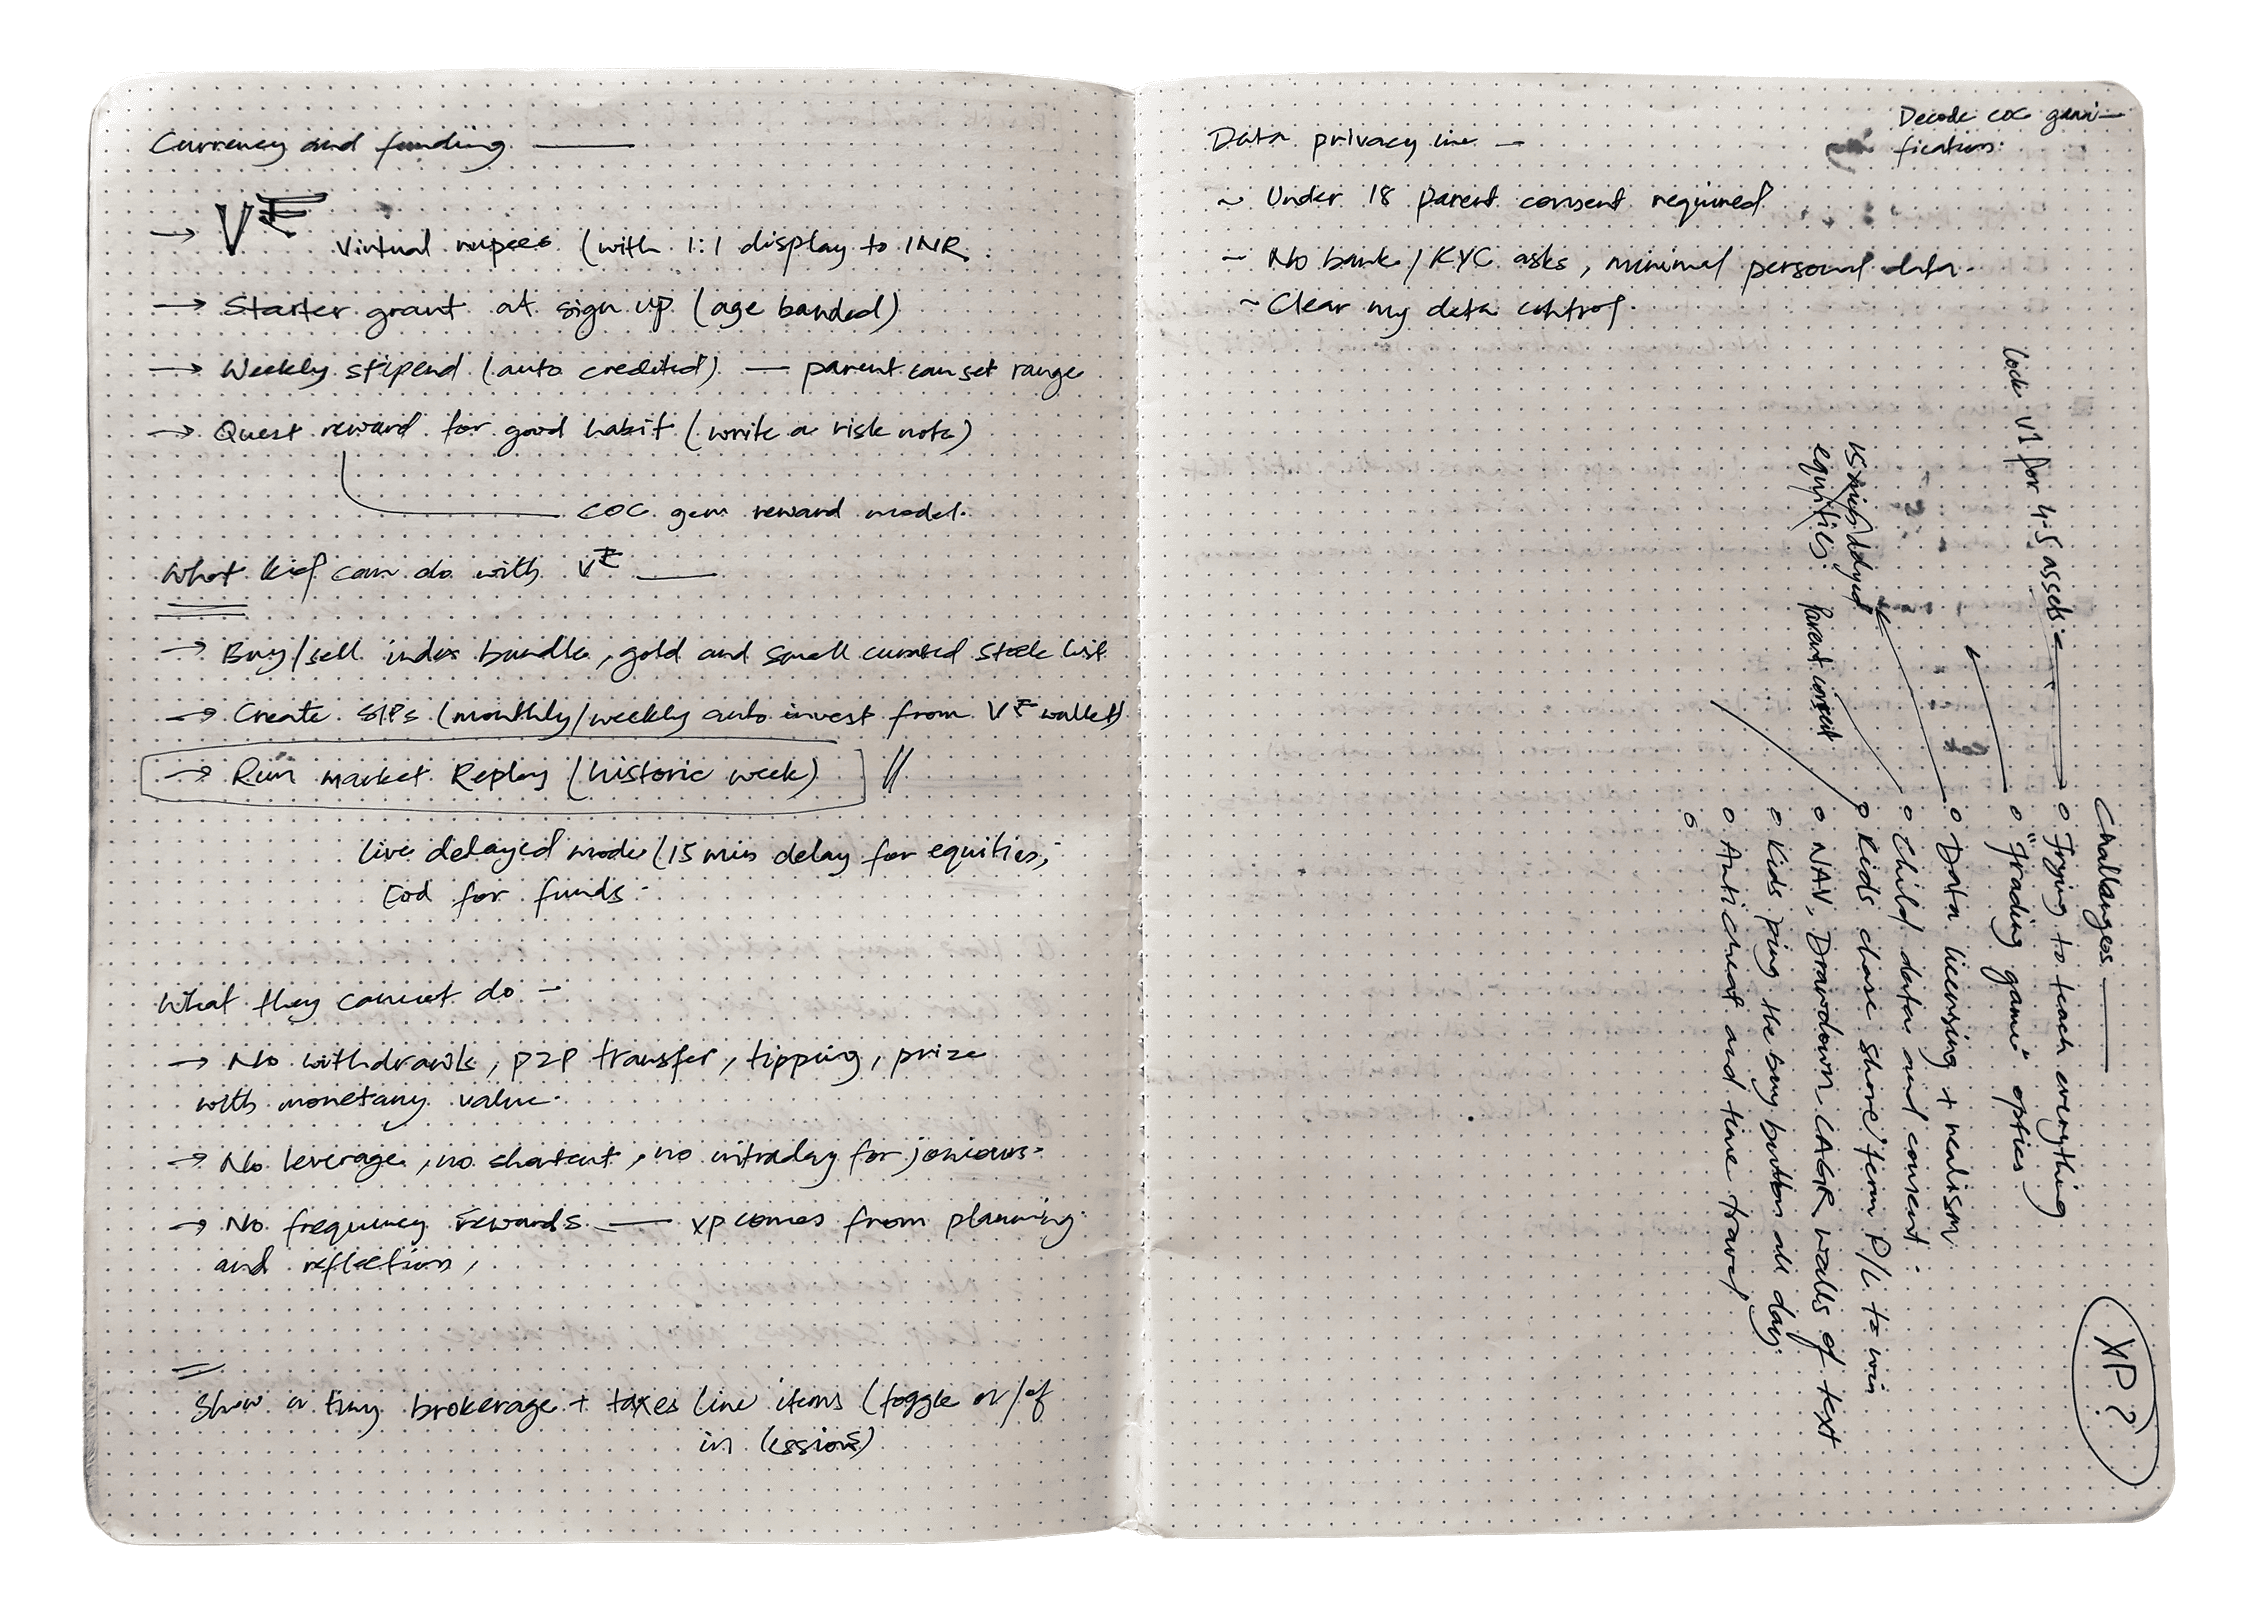 Currency and funding —
→ V₹ Virtual rupees (with 1:1 display to INR.
→ Starter grant at sign up (age banded)
→ Weekly stipend (auto credited) — parent can set range
→ Quest reward for good habit (write a risk note)
COC gem reward model.
What kid can do with V₹ —
→ Buy/sell index bundle, gold and small curated stock list
→ Create SIPs (monthly/weekly auto invest from V₹ wallet)
→ Run market Replay (historic week) //
live delayed mode (15 min delay for equities,
EOD for funds.
What they cannot do —
→ No withdrawls, P2P transfer, tipping, prize
with monetary value.
→ No leverage, no shortcut, no intraday for joniours.
→ No frequency rewards — XP comes from planning
and reflection,
Show a tiny brokerage + taxes line items (toggle on/of
in lessions)
Data privacy line —
~ Under 18 parent consent required
~ No bank/KYC asks, minimal personal data.
~ Clear my data control.
Decode COC gami-
fication.
Challanges —
o Trying to teach everything
o "Trading game" optics
o Data licensing + realism
o Child data and consent.
o Kids chase short term P/L to win
o NAV, Drawdown, CAGR walls of text
o Kids ping the buy button all day.
o Anti cheat and time travel
o
lock V1 for 4-5 assets
15 mins delayed
equities.
Parent consent
XP?